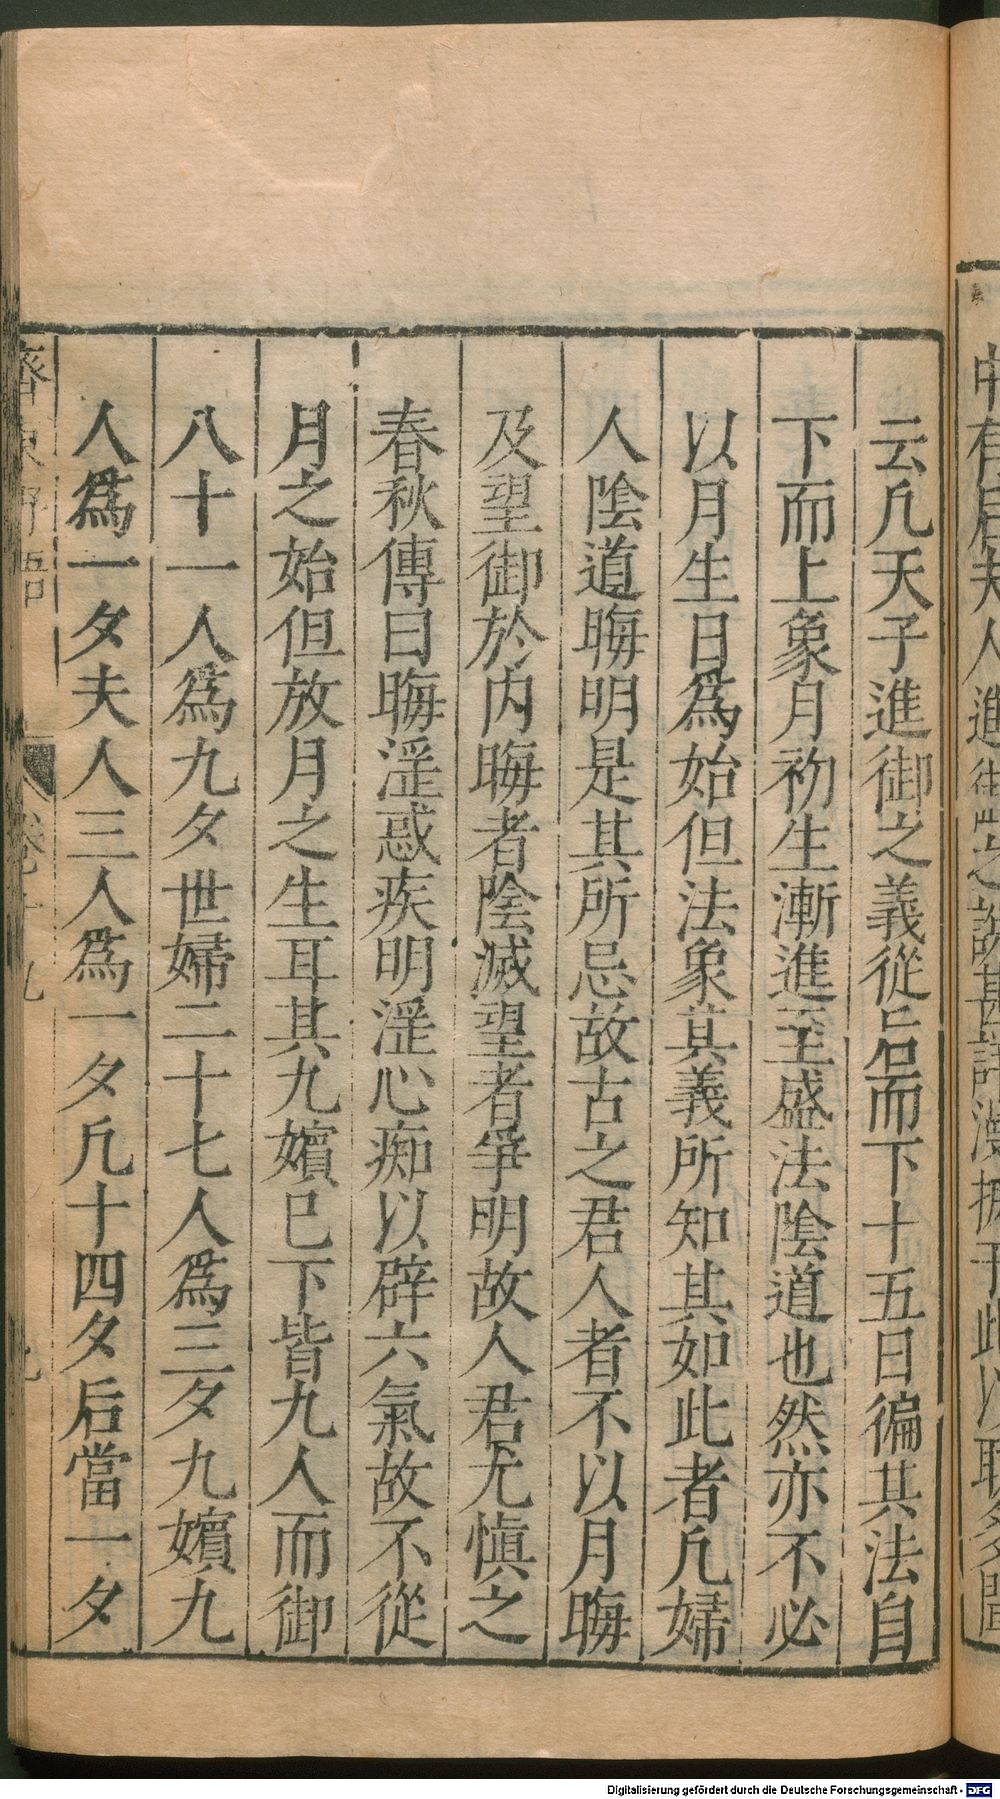 云凡天子進御之義從后而下十五日徧其法自
下而上象月初生漸進至盛法陰道也然亦不必
以月生日爲始但法象其義所知其如此者凡婦
人陰道晦明是其所忌故古之君人者不以月晦
及望御於内晦者陰滅望者爭明故人君尤慎之
春秋傳曰晦淫惑疾明淫心痴以辟六氣故不從
月之始但放月之生耳其九嬪已下皆九人而御
八十一人爲九夕世婦二十七人爲三夕九嬪九
人爲一夕夫人三人爲一夕凡十四夕后當一夕
齊東野語 卷十九 九
Digitalisierung gefördert durch die Deutsche Forschungsgemeinschaft - DFG